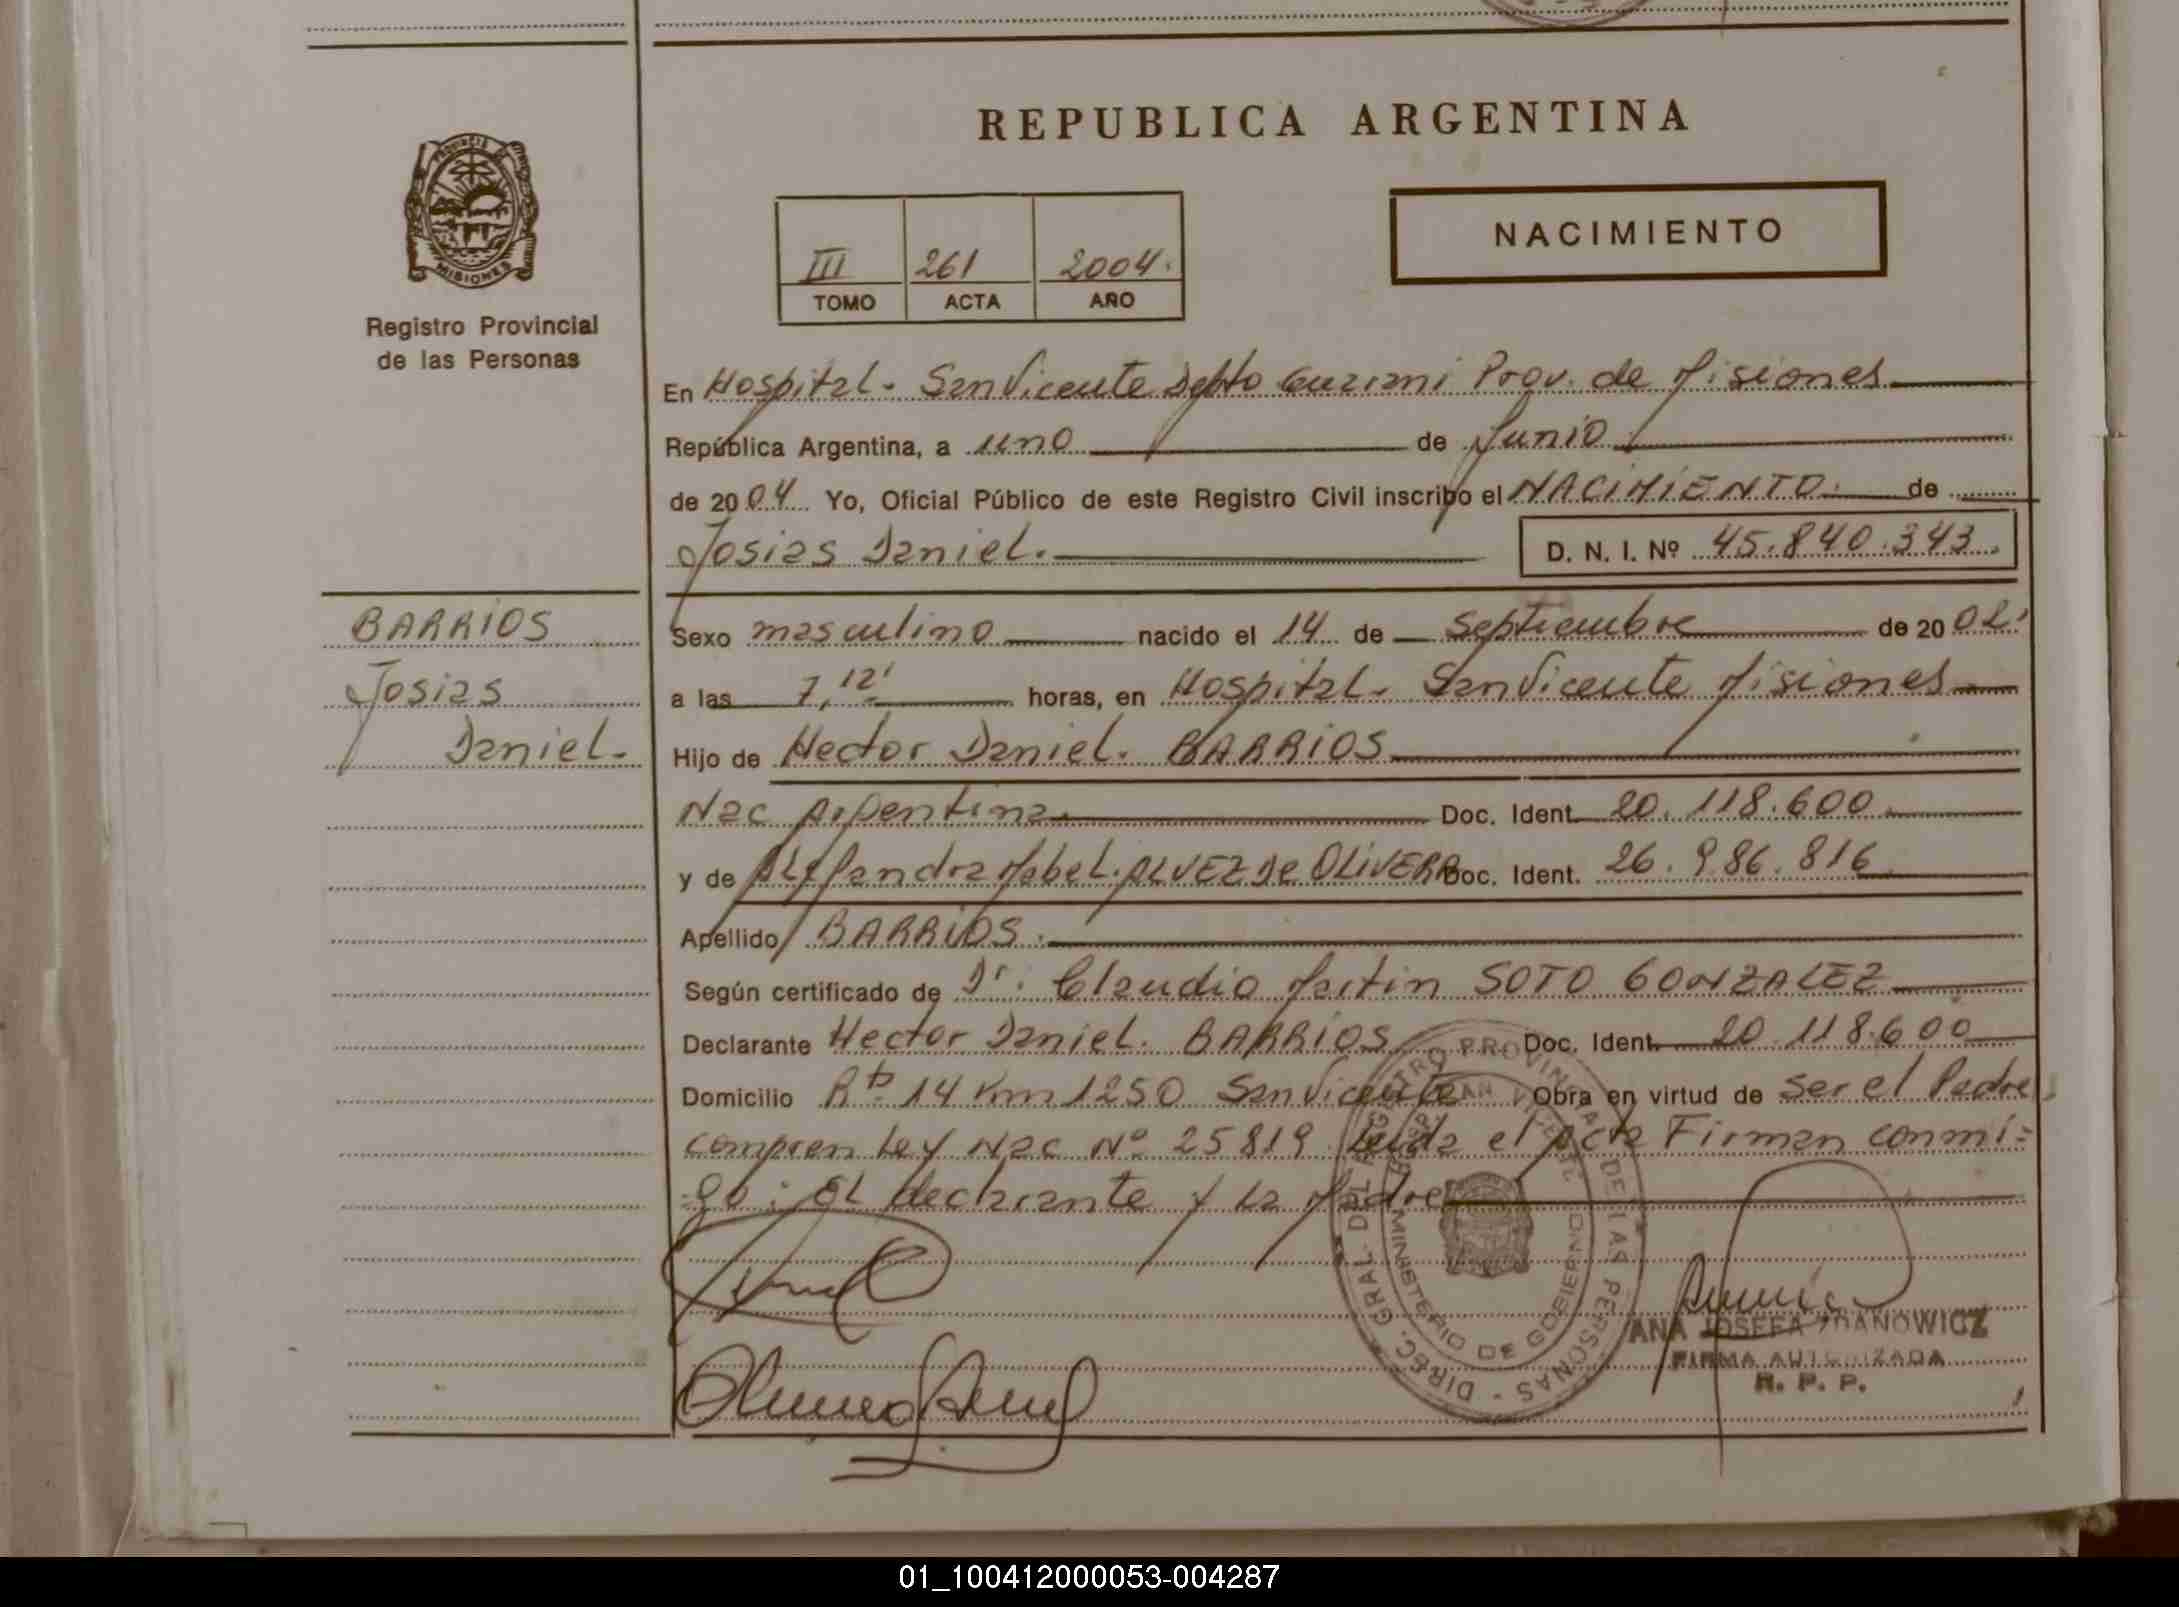 REPUBLICA ARGENTINA
PROVINCIA DE
MISIONES
Registro Provincial
de las Personas
III 261 2004.
TOMO ACTA AÑO
NACIMIENTO
En Hospital - San Vicente Depto Guarani Prov. de Misiones
República Argentina, a uno de Junio
de 2004 Yo, Oficial Público de este Registro Civil inscribo el NACIMIENTO. de
Josias Daniel.
D. N. I. Nº 45.840.343.
BARRIOS
Josias
Daniel-
Sexo masculino nacido el 14 de Septiembre de 2002.
a las 7,12' horas, en Hospital - San Vicente Misiones
Hijo de Hector Daniel. BARRIOS
Nac Argentina Doc. Ident. 20.118.600
y de Alejandra Mabel. ALVEZ De OLIVERA Doc. Ident. 26.986.816
Apellido BARRIOS.
Según certificado de Dr. Claudio Martin SOTO GONZALEZ
Declarante Hector Daniel. BARRIOS Doc. Ident. 20.118.600
Domicilio Rta 14 Km 1250 San Vicente Obra en virtud de ser el Padre
compren Ley Nac Nº 25819. Leida el acta Firman conmi=
go: el declarante y la Madre
DIREC. GRAL. DEL REGISTRO PROVINCIAL DE LAS PERSONAS -
MINISTERIO DE GOBIERNO
ANA JOSEFA ZDANOWICZ
FIRMA AUTORIZADA
R. P. P.
01_100412000053-004287